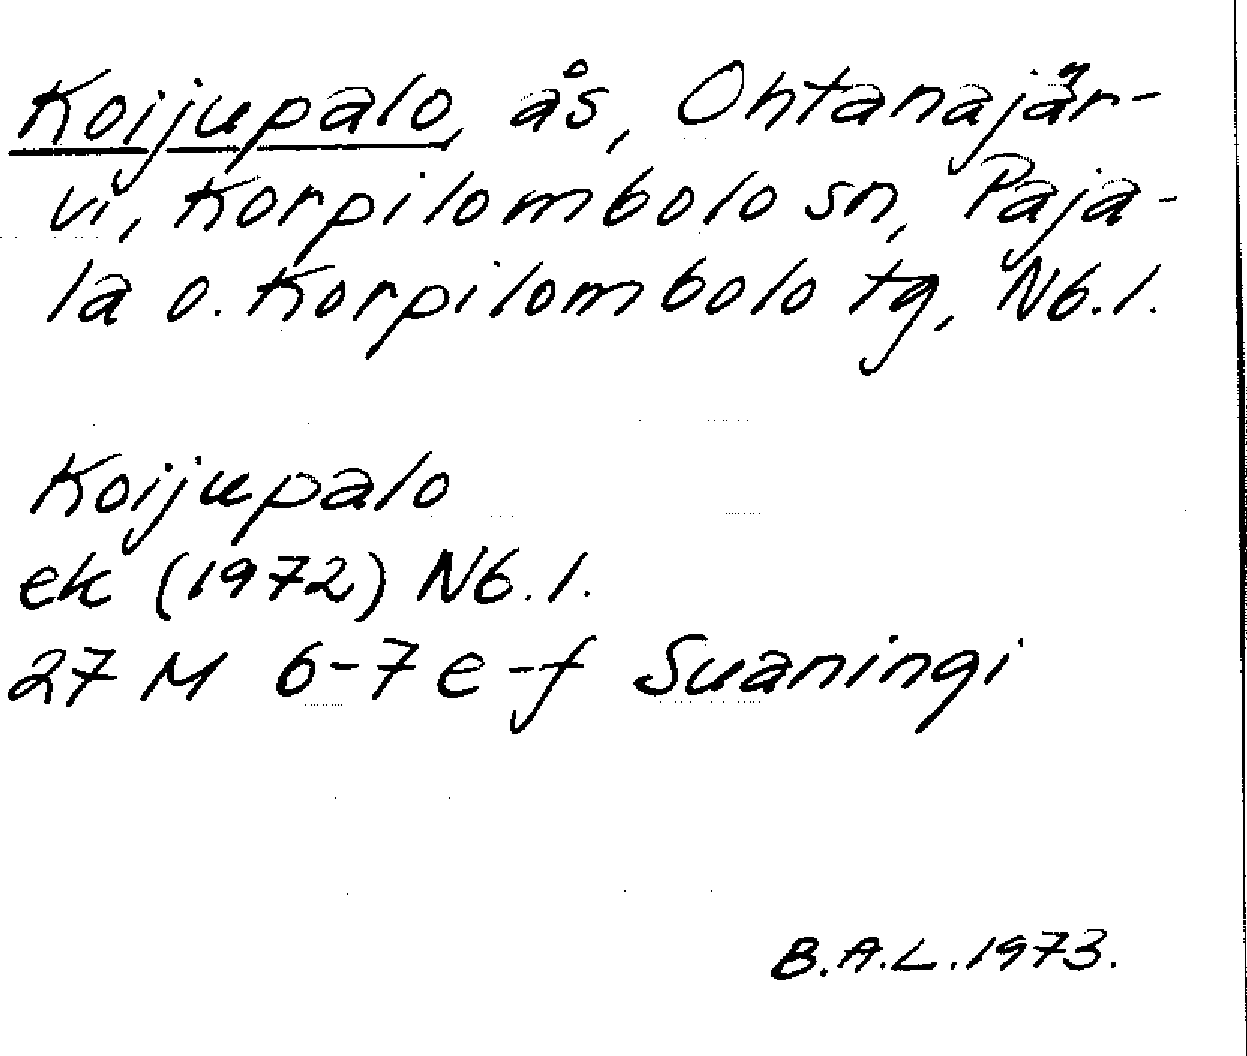 Koijupalo, ås, Ohtanajär-
vi, Korpilombolo sn, Paja-
la o. Korpilombolo tg, Nb.l.
Koijupalo
ek (1972) Nb.l.
27 M 6-7 e-f Suaningi
B.A.L. 1973.